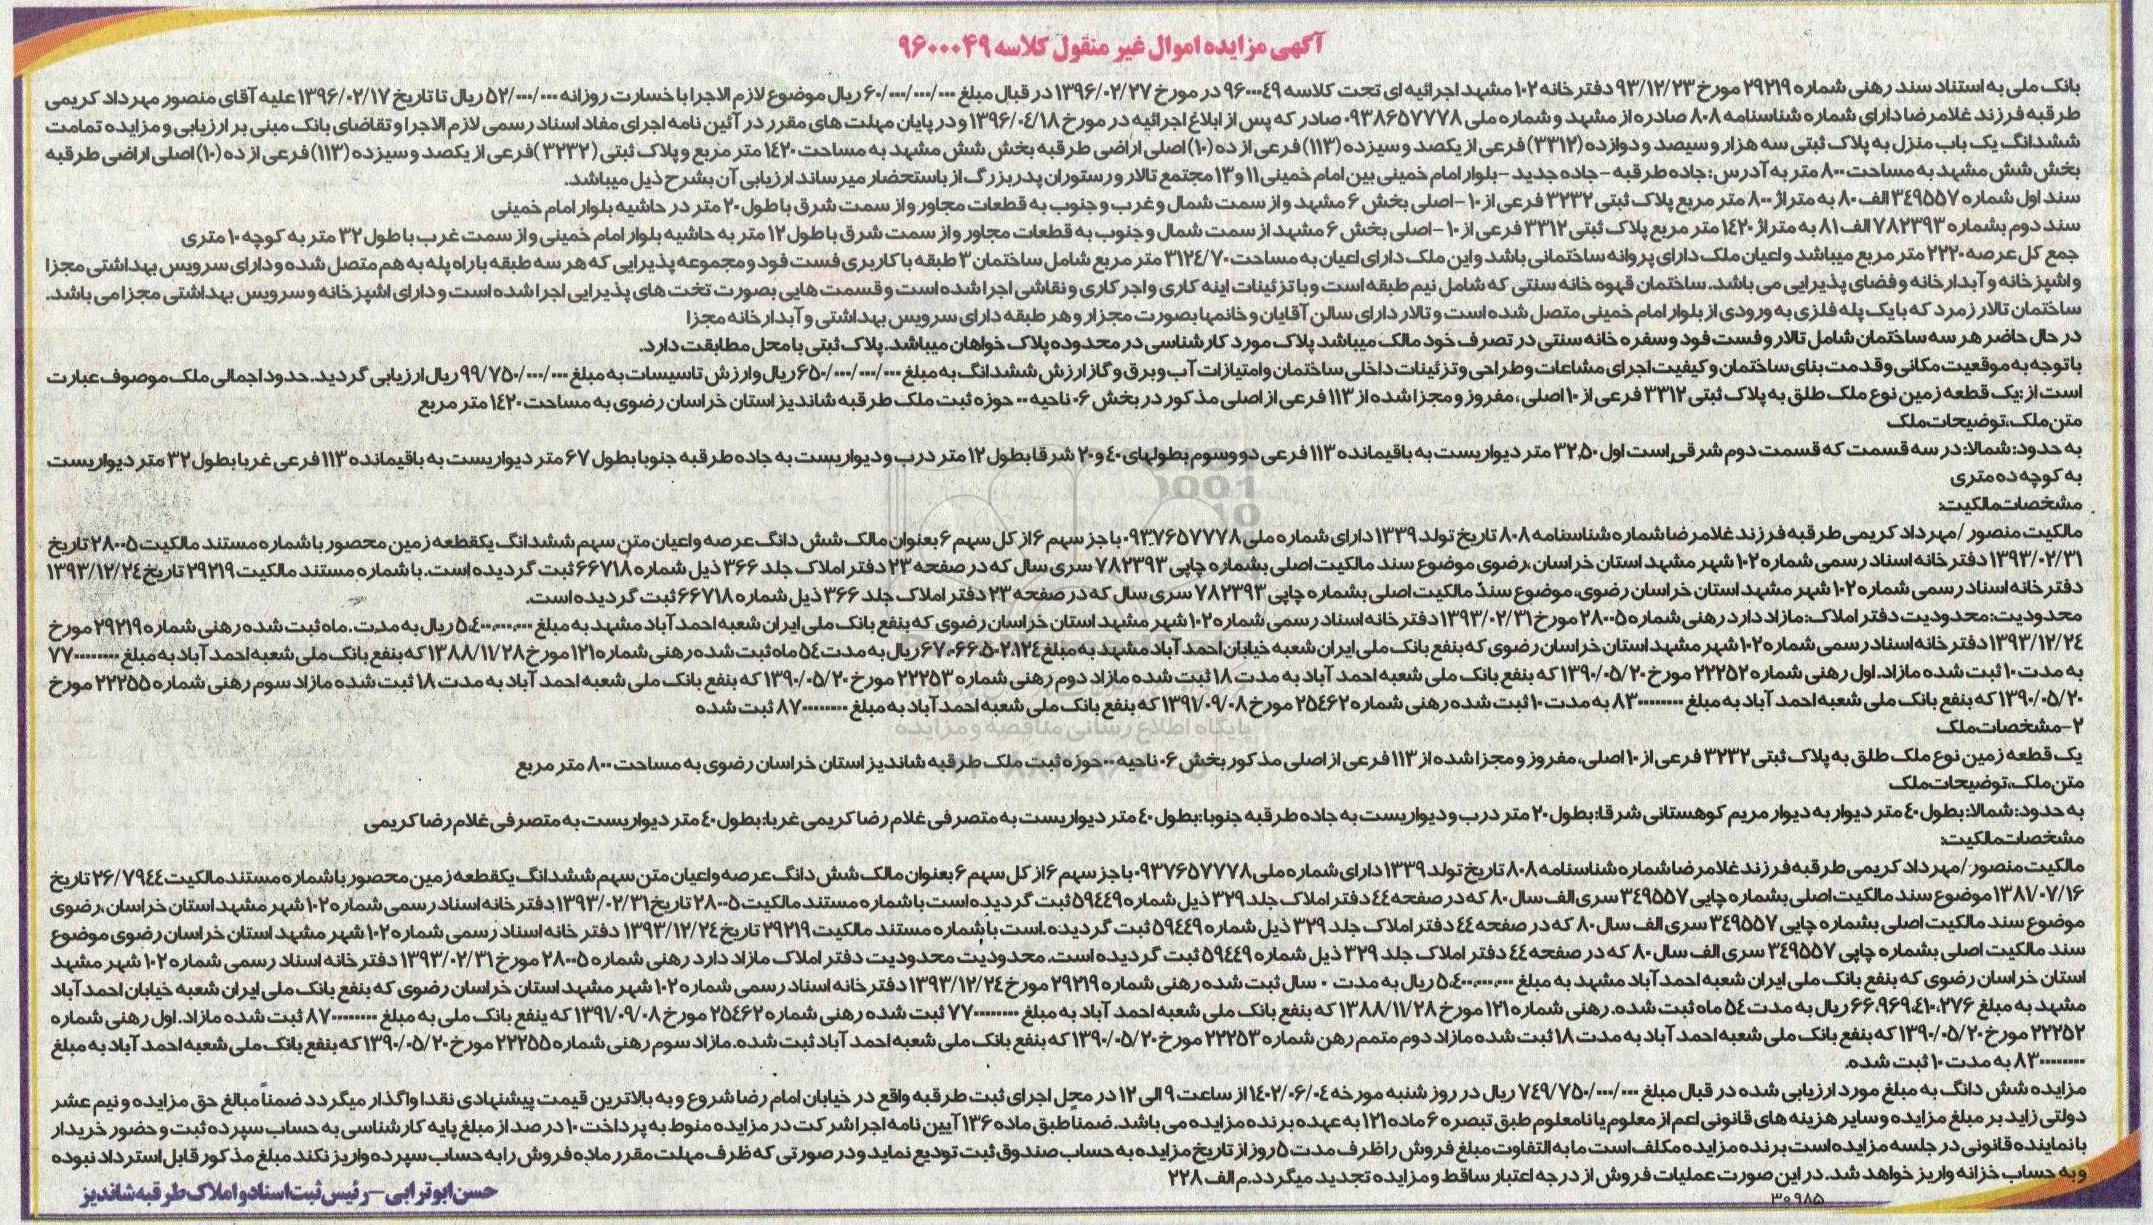 آگهی مزایده اموال غیر منقول کلاسه ۹۶۰۰۰۴۹
بانک ملی به استناد سند رهنی شماره ۲۹۲۱۹ مورخ ۹۳/۱۲/۲۳ دفترخانه ۱۰۲ مشهد اجرائیه ای تحت کلاسه ۹۶۰۰۰۴۹ در مورخ ۱۳۹۶/۰۲/۲۷ در قبال مبلغ ۶۰/۰۰۰/۰۰۰/۰۰۰ ریال موضوع لازم الاجرا با خسارت روزانه ۵۲/۰۰۰/۰۰۰ ریال تا تاریخ ۱۳۹۶/۰۲/۱۷ علیه آقای منصور مهرداد کریمی
طرقبه فرزند غلامرضا دارای شماره شناسنامه ۸۰۸ صادره از مشهد و شماره ملی ۰۹۳۸۶۵۷۷۷۸ صادر که پس از ابلاغ اجرائیه در مورخ ۱۳۹۶/۰۴/۱۸ و در پایان مهلت های مقرر در آئین نامه اجرای مفاد اسناد رسمی لازم الاجرا و تقاضای بانک مبنی بر ارزیابی و مزایده تمامت
ششدانگ یک باب منزل به پلاک ثبتی سه هزار و سیصد و دوازده (۳۳۱۲) فرعی از یکصد و سیزده (۱۱۳) فرعی از ده (۱۰) اصلی اراضی طرقبه بخش شش مشهد به مساحت ۱۴۲۰ متر مربع و پلاک ثبتی (۳۲۳۲) فرعی از یکصد و سیزده (۱۱۳) فرعی از ده (۱۰) اصلی اراضی طرقبه
بخش شش مشهد به مساحت ۸۰۰ متر به آدرس: جاده طرقبه - جاده جدید - بلوار امام خمینی بین امام خمینی ۱۱ و ۱۳ مجتمع تالار و رستوران پدربزرگ از باستحضار میرساند ارزیابی آن بشرح ذیل میباشد.
سند اول شماره ۳۴۹۵۵۷ الف ۸۰ به متراژ ۸۰۰ متر مربع پلاک ثبتی ۳۲۳۲ فرعی از ۱۰ - اصلی بخش ۶ مشهد و از سمت شمال و غرب و جنوب به قطعات مجاور و از سمت شرق با طول ۲۰ متر در حاشیه بلوار امام خمینی
سند دوم بشماره ۷۸۲۳۹۳ الف ۸۱ به متراژ ۱۴۲۰ متر مربع پلاک ثبتی ۳۳۱۲ فرعی از ۱۰ - اصلی بخش ۶ مشهد از سمت شمال و جنوب به قطعات مجاور و از سمت شرق با طول ۱۲ متر به حاشیه بلوار امام خمینی و از سمت غرب با طول ۳۲ متر به کوچه ۱۰ متری
جمع کل عرصه ۲۲۲۰ متر مربع میباشد و اعیان ملک دارای پروانه ساختمانی باشد و این ملک دارای اعیان به مساحت ۳۱۲۴/۷۰ متر مربع شامل ساختمان ۳ طبقه با کاربری فست فود و مجموعه پذیرایی که هر سه طبقه با راه پله به هم متصل شده و دارای سرویس بهداشتی مجزا
و اشپزخانه و آبدارخانه و فضای پذیرایی می باشد. ساختمان قهوه خانه سنتی که شامل نیم طبقه است و با تزئینات اینه کاری و اجرکاری و نقاشی اجرا شده است و قسمت هایی بصورت تخت های پذیرایی اجرا شده است و دارای اشپزخانه و سرویس بهداشتی مجزا می باشد.
ساختمان تالار زمرد که با یک پله فلزی به ورودی از بلوار امام خمینی متصل شده است و تالار دارای سالن آقایان و خانمها بصورت مجزار و هر طبقه دارای سرویس بهداشتی و آبدارخانه مجزا
در حال حاضر هر سه ساختمان شامل تالار و فست فود و سفره خانه سنتی در تصرف خود مالک میباشد پلاک مورد کارشناسی در محدوده پلاک خواهان میباشد. پلاک ثبتی با محل مطابقت دارد.
با توجه به موقعیت مکانی و قدمت بنای ساختمان و کیفیت اجرای مشاعات و طراحی و تزئینات داخلی ساختمان و امتیازات آب و برق و گاز ارزش ششدانگ به مبلغ ۶۵۰/۰۰۰/۰۰۰/۰۰۰ ریال و ارزش تاسیسات به مبلغ ۹۹/۷۵۰/۰۰۰/۰۰۰ ریال ارزیابی گردید. حدود اجمالی ملک موصوف عبارت
است از: یک قطعه زمین نوع ملک طلق به پلاک ثبتی ۳۳۱۲ فرعی از ۱۰ اصلی، مفروز و مجزا شده از ۱۱۳ فرعی از اصلی مذکور در بخش ۰۶ ناحیه ۰۰ حوزه ثبت ملک طرقبه شاندیز استان خراسان رضوی به مساحت ۱۴۲۰ متر مربع
متن ملک، توضیحات ملک
به حدود: شمالا: در سه قسمت که قسمت دوم شرقی است اول ۳۲،۵۰ متر دیواریست به باقیمانده ۱۱۳ فرعی دو و سوم بطولهای ۴۰ و ۲۰ شرقا بطول ۱۲ متر درب و دیواریست به جاده طرقبه جنوبا بطول ۶۷ متر دیواریست به باقیمانده ۱۱۳ فرعی غربا بطول ۳۲ متر دیواریست
به کوچه ده متری
مشخصات مالکیت:
مالکیت منصور / مهرداد کریمی طرقبه فرزند غلامرضا شماره شناسنامه ۸۰۸ تاریخ تولد ۱۳۳۹ دارای شماره ملی ۰۹۳۷۶۵۷۷۷۸ با جز سهم ۶ از کل سهم ۶ بعنوان مالک شش دانگ عرصه و اعیان متن سهم ششدانگ یکقطعه زمین محصور با شماره مستند مالکیت ۲۸۰۰۵ تاریخ
۱۳۹۳/۰۲/۳۱ دفترخانه اسناد رسمی شماره ۱۰۲ شهر مشهد استان خراسان رضوی موضوع سند مالکیت اصلی بشماره چاپی ۷۸۲۳۹۳ سری سال که در صفحه ۲۳ دفتر املاک جلد ۳۶۶ ذیل شماره ۶۶۷۱۸ ثبت گردیده است. با شماره مستند مالکیت ۲۹۲۱۹ تاریخ ۱۳۹۳/۱۲/۲۴
دفترخانه اسناد رسمی شماره ۱۰۲ شهر مشهد استان خراسان رضوی، موضوع سند مالکیت اصلی بشماره چاپی ۷۸۲۳۹۳ سری سال که در صفحه ۲۳ دفتر املاک جلد ۳۶۶ ذیل شماره ۶۶۷۱۸ ثبت گردیده است.
محدودیت: محدودیت دفتر املاک: مازاد دارد رهنی شماره ۲۸۰۰۵ مورخ ۱۳۹۳/۰۲/۳۱ دفترخانه اسناد رسمی شماره ۱۰۲ شهر مشهد استان خراسان رضوی که بنفع بانک ملی ایران شعبه احمدآباد مشهد به مبلغ ۵،۴۰۰،۰۰۰،۰۰۰ ریال به مدت ۰ ماه ثبت شده رهنی شماره ۲۹۲۱۹ مورخ
۱۳۹۳/۱۲/۲۴ دفترخانه اسناد رسمی شماره ۱۰۲ شهر مشهد استان خراسان رضوی که بنفع بانک ملی ایران شعبه خیابان احمدآباد مشهد به مبلغ ۶۷،۰۶۶،۵۰۲،۱۲۴ ریال به مدت ۵۴ ماه ثبت شده رهنی شماره ۱۲۱ مورخ ۱۳۸۸/۱۱/۲۸ که بنفع بانک ملی شعبه احمدآباد به مبلغ ۷۷۰۰۰۰۰۰۰۰
به مدت ۱۰ ثبت شده مازاد. اول رهنی شماره ۲۲۲۵۲ مورخ ۱۳۹۰/۰۵/۲۰ که بنفع بانک ملی شعبه احمدآباد به مدت ۱۸ ثبت شده مازاد دوم رهنی شماره ۲۲۲۵۳ مورخ ۱۳۹۰/۰۵/۲۰ که بنفع بانک ملی شعبه احمدآباد به مدت ۱۸ ثبت شده مازاد سوم رهنی شماره ۲۲۲۵۵ مورخ
۱۳۹۰/۰۵/۲۰ که بنفع بانک ملی شعبه احمدآباد به مبلغ ۸۳۰۰۰۰۰۰۰۰ به مدت ۱۰ ثبت شده رهنی شماره ۲۵۴۶۲ مورخ ۱۳۹۱/۰۹/۰۸ که بنفع بانک ملی شعبه احمدآباد به مبلغ ۸۷۰۰۰۰۰۰۰۰ ثبت شده
۲- مشخصات ملک
یک قطعه زمین نوع ملک طلق به پلاک ثبتی ۳۲۳۲ فرعی از ۱۰ اصلی، مفروز و مجزا شده از ۱۱۳ فرعی از اصلی مذکور بخش ۰۶ ناحیه ۰۰ حوزه ثبت ملک طرقبه شاندیز استان خراسان رضوی به مساحت ۸۰۰ متر مربع
متن ملک، توضیحات ملک
به حدود: شمالا: بطول ۴۰ متر دیوار به دیوار مریم کوهستانی شرقا: بطول ۲۰ متر درب و دیواریست به جاده طرقبه جنوبا: بطول ۴۰ متر دیواریست به متصرفی غلام رضا کریمی غربا: بطول ۴۰ متر دیواریست به متصرفی غلام رضا کریمی
مشخصات مالکیت:
مالکیت منصور / مهرداد کریمی طرقبه فرزند غلامرضا شماره شناسنامه ۸۰۸ تاریخ تولد ۱۳۳۹ دارای شماره ملی ۰۹۳۷۶۵۷۷۷۸ با جز سهم ۶ از کل سهم ۶ بعنوان مالک شش دانگ عرصه و اعیان متن سهم ششدانگ یکقطعه زمین محصور با شماره مستند مالکیت ۲۶/۷۹۴۴ تاریخ
۱۳۸۱/۰۷/۱۶ موضوع سند مالکیت اصلی بشماره چاپی ۳۴۹۵۵۷ سری الف سال ۸۰ که در صفحه ۴۴ دفتر املاک جلد ۳۲۹ ذیل شماره ۵۹۴۴۹ ثبت گردیده است با شماره مستند مالکیت ۲۸۰۰۵ تاریخ ۱۳۹۳/۰۲/۳۱ دفترخانه اسناد رسمی شماره ۱۰۲ شهر مشهد استان خراسان رضوی
موضوع سند مالکیت اصلی بشماره چاپی ۳۴۹۵۵۷ سری الف سال ۸۰ که در صفحه ۴۴ دفتر املاک جلد ۳۲۹ ذیل شماره ۵۹۴۴۹ ثبت گردیده است با شماره مستند مالکیت ۲۹۲۱۹ تاریخ ۱۳۹۳/۱۲/۲۴ دفتر خانه اسناد رسمی شماره ۱۰۲ شهر مشهد استان خراسان رضوی موضوع
سند مالکیت اصلی بشماره چاپی ۳۴۹۵۵۷ سری الف سال ۸۰ که در صفحه ۴۴ دفتر املاک جلد ۳۲۹ ذیل شماره ۵۹۴۴۹ ثبت گردیده است. محدودیت محدودیت دفتر املاک مازاد دارد رهنی شماره ۲۸۰۰۵ مورخ ۱۳۹۳/۰۲/۳۱ دفترخانه اسناد رسمی شماره ۱۰۲ شهر مشهد
استان خراسان رضوی که بنفع بانک ملی ایران شعبه احمدآباد مشهد به مبلغ ۵،۴۰۰،۰۰۰،۰۰۰ ریال به مدت ۰ سال ثبت شده رهنی شماره ۲۹۲۱۹ مورخ ۱۳۹۳/۱۲/۲۴ دفترخانه اسناد رسمی شماره ۱۰۲ شهر مشهد استان خراسان رضوی که بنفع بانک ملی ایران شعبه خیابان احمدآباد
مشهد به مبلغ ۶۶،۹۶۹،۴۱۰،۲۷۶ ریال به مدت ۵۴ ماه ثبت شده. رهنی شماره ۱۲۱ مورخ ۱۳۸۸/۱۱/۲۸ که بنفع بانک ملی شعبه احمدآباد به مبلغ ۷۷۰۰۰۰۰۰۰۰ ثبت شده رهنی شماره ۲۵۴۶۲ مورخ ۱۳۹۱/۰۹/۰۸ که بنفع بانک ملی به مبلغ ۸۷۰۰۰۰۰۰۰۰ ثبت شده مازاد. اول رهنی شماره
۲۲۲۵۲ مورخ ۱۳۹۰/۰۵/۲۰ که بنفع بانک ملی شعبه احمدآباد به مدت ۱۸ ثبت شده مازاد دوم متمم رهن شماره ۲۲۲۵۳ مورخ ۱۳۹۰/۰۵/۲۰ که بنفع بانک ملی شعبه احمدآباد ثبت شده. مازاد سوم رهنی شماره ۲۲۲۵۵ مورخ ۱۳۹۰/۰۵/۲۰ که بنفع بانک ملی شعبه احمدآباد به مبلغ
۸۳۰۰۰۰۰۰۰۰ به مدت ۱۰ ثبت شده.
مزایده شش دانگ به مبلغ مورد ارزیابی شده در قبال مبلغ ۷۴۹/۷۵۰/۰۰۰/۰۰۰ ریال در روز شنبه مورخه ۱۴۰۲/۰۶/۰۴ از ساعت ۹ الی ۱۲ در محل اجرای ثبت طرقبه واقع در خیابان امام رضا شروع و به بالاترین قیمت پیشنهادی نقدا واگذار میگردد ضمناً مبالغ حق مزایده و نیم عشر
دولتی زاید بر مبلغ مزایده و سایر هزینه های قانونی اعم از معلوم یا نامعلوم طبق تبصره ۶ ماده ۱۲۱ به عهده برنده مزایده می باشد. ضمنا طبق ماده ۱۳۶ آیین نامه اجرا شرکت در مزایده منوط به پرداخت ۱۰ درصد از مبلغ پایه کارشناسی به حساب سپرده ثبت و حضور خریدار
یا نماینده قانونی در جلسه مزایده است برنده مزایده مکلف است مابه التفاوت مبلغ فروش را ظرف مدت ۵ روز از تاریخ مزایده به حساب صندوق ثبت تودیع نماید و در صورتی که ظرف مهلت مقرر مانده فروش را به حساب سپرده واریز نکند مبلغ مذکور قابل استرداد نبوده
و به حساب خزانه واریز خواهد شد. در این صورت عملیات فروش از درجه اعتبار ساقط و مزایده تجدید میگردد. م الف ۲۲۸
حسن ابوترابی - رئیس ثبت اسناد و املاک طرقبه شاندیز
۳۰۹۸۵
پایگاه اطلاع رسانی مناقصه و مزایده